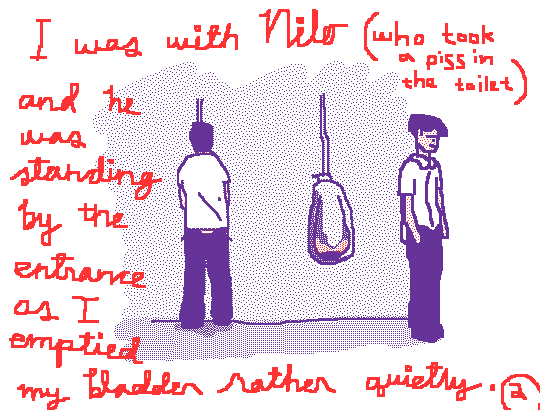 I was with Nilo (who took
a piss in
the toilet)
and he
was
standing
by the
entrance
as I
emptied
my bladder rather quietly. 2